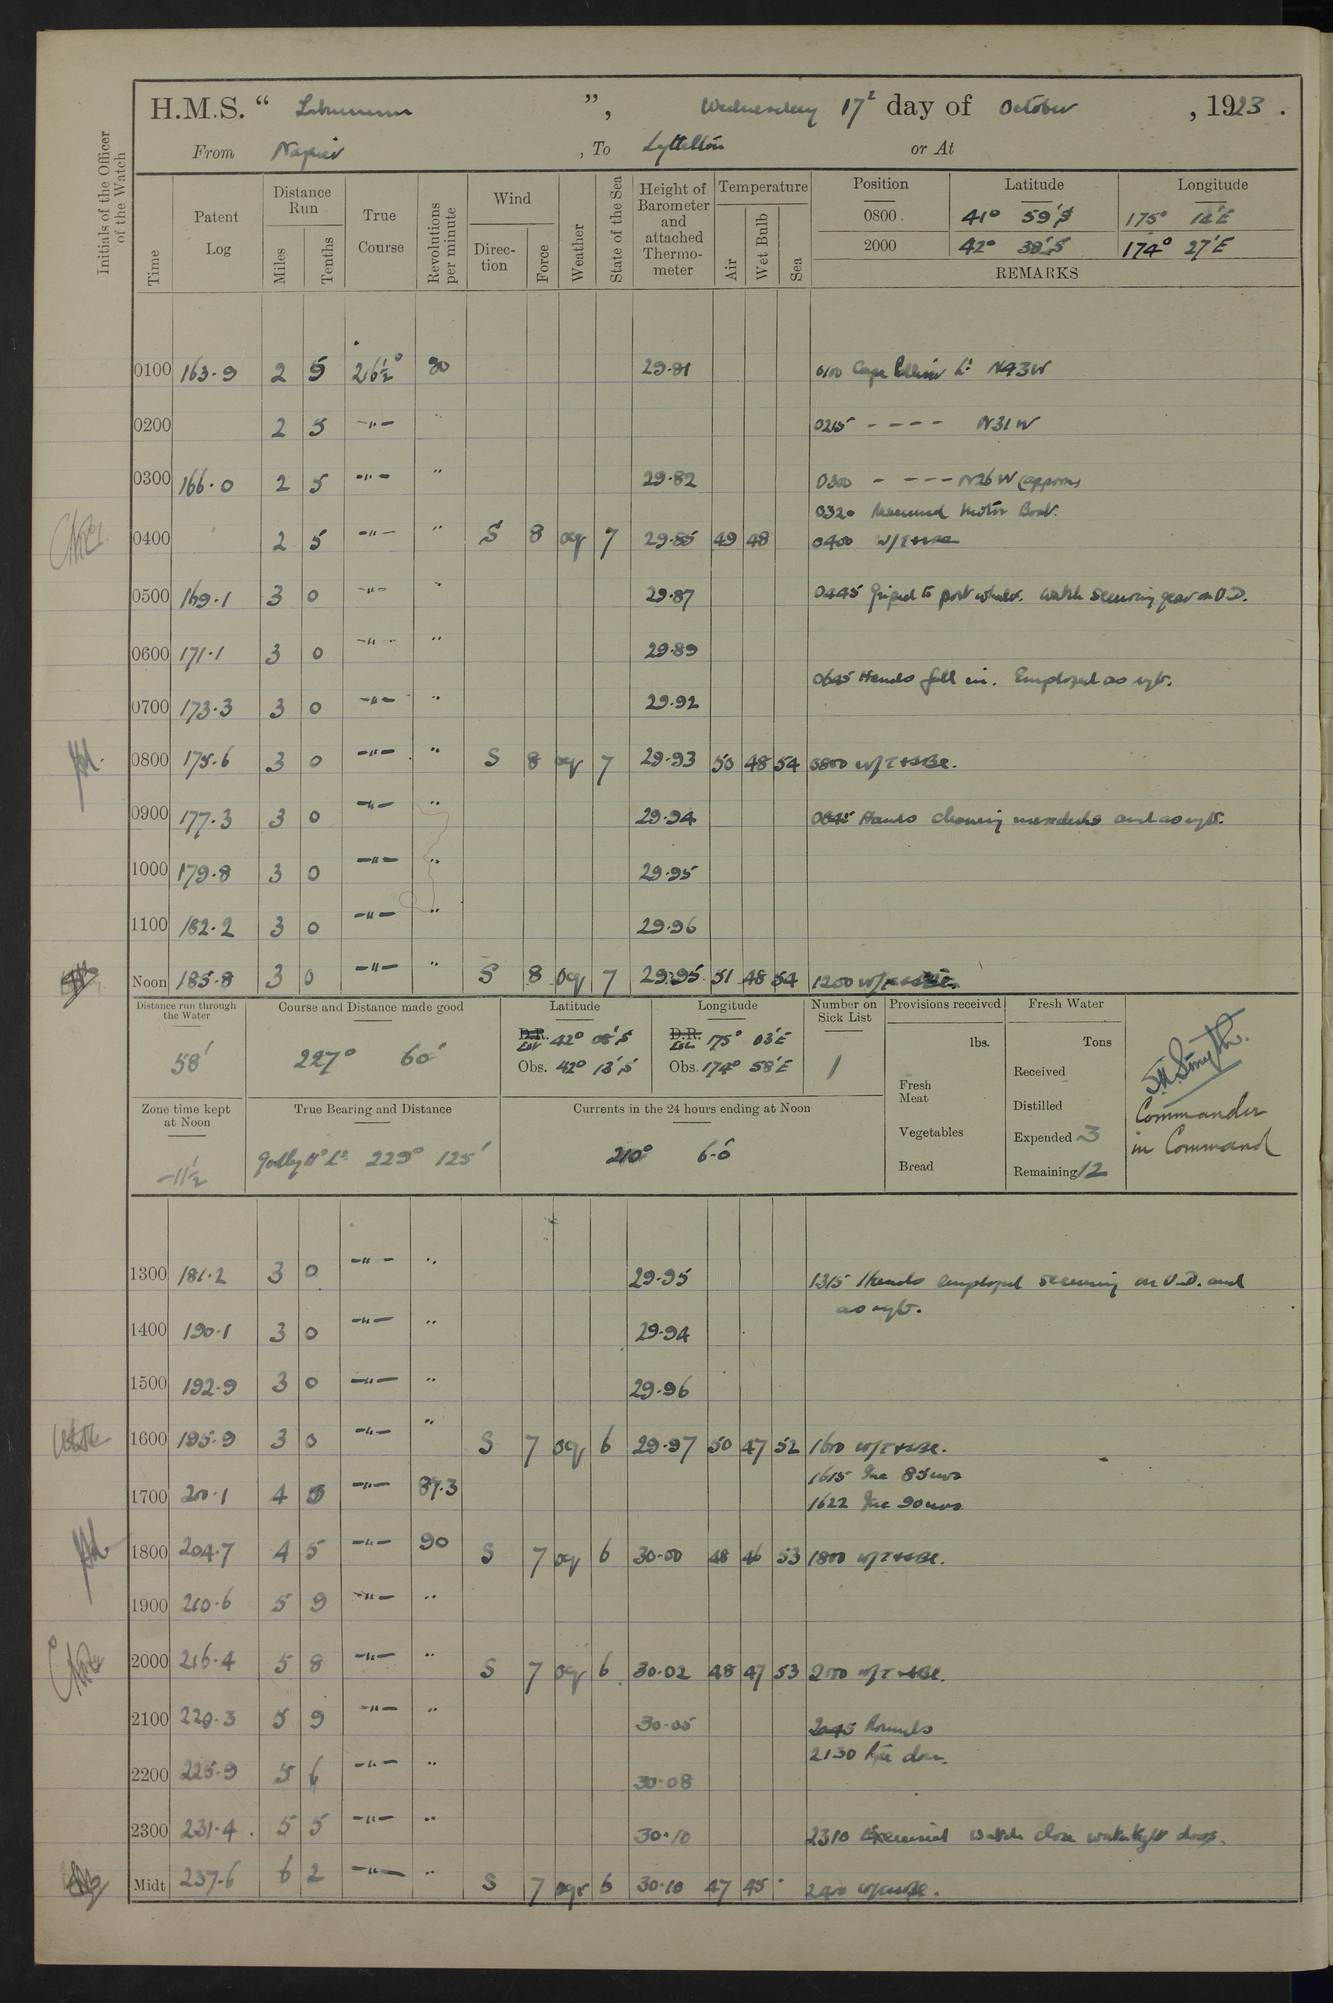 H.M.S. “ Laburnum ”, Wednesday 17th day of October , 1923 .
From Napier , To Lyttelton or At
Initials of the Officer of the Watch
Time Patent Log Distance Run Miles Tenths True Course Revolutions per minute Wind Direction Force Weather State of the Sea Height of Barometer and attached Thermometer Temperature Air Wet Bulb Sea
Position Latitude Longitude
0800 41° 59'S 175° 14'E
2000 42° 38'S 174° 27'E
REMARKS
0100 163.9 2 5 216½° 80 29.81 0100 Cape Lt N43W
0200 2 5 -"- " 0215 - - - - N31W
0300 166.0 2 5 -"- " 29.82 0300 - - - - N26W (approx)
0320 Manned Motor Boat.
0400 2 5 -"- " S 8 oq 7 29.85 49 48 0400 W/T+SBE
0500 169.1 3 0 -"- " 29.87 0445 Griped to port whaler. Watch securing gear on U.D.
0600 171.1 3 0 -"- " 29.89
0645 Hands fall in. Employed as nyt.
0700 173.3 3 0 -"- " 29.92
0800 175.6 3 0 -"- " S 8 oq 7 29.93 50 48 54 0800 W/T+SBE.
0900 177.3 3 0 -"- " 29.94 0845 Hands cleaning messdecks and as nyt.
1000 179.8 3 0 -"- " 29.95
1100 182.2 3 0 -"- " 29.96
Noon 185.8 3 0 -"- " S 8 oq 7 29.95 51 48 54 1200 W/T+SBE.
Distance run through the Water Course and Distance made good Latitude Longitude Number on Sick List Provisions received Fresh Water
58' 227° 60' D.R. Est 42° 08'S D.R. Est. 175° 03'E 1 lbs. Tons
Obs. 42° 13'S Obs. 174° 58'E
Fresh Meat Received
Vegetables Distilled
Bread Expended 3
Remaining 12
Smyth.
Commander
in Command
Zone time kept at Noon True Bearing and Distance Currents in the 24 hours ending at Noon
-11½ Godley Hd Lt 229° 125' 210° 6.0'
1300 186.2 3 0 -"- " 29.95 1315 Hands employed securing on U.D. and
as nyt.
1400 190.1 3 0 -"- " 29.94
1500 192.9 3 0 -"- " 29.96
1600 195.9 3 0 -"- " S 7 oq 6 29.97 50 47 52 1600 W/T+SBE.
1615 Inc 85 revs
1700 200.1 4 -"- 87.3 1622 Inc 90 revs
1800 204.7 4 5 -"- 90 S 7 oq 6 30.00 48 46 53 1800 W/T+SBE.
1900 210.6 5 9 -"- "
2000 216.4 5 8 -"- " S 7 oq 6 30.02 48 47 53 2000 W/T+SBE.
2100 220.3 5 9 -"- " 30.05 2045 Rounds
2130 Pipe down.
2200 225.9 5 6 -"- " 30.08
2300 231.4 5 5 -"- " 30.10 2310 Exercised watch close watertight doors.
Midt 237.6 6 2 -"- " S 7 oqr 6 30.10 47 45 2400 W/T+SBE.